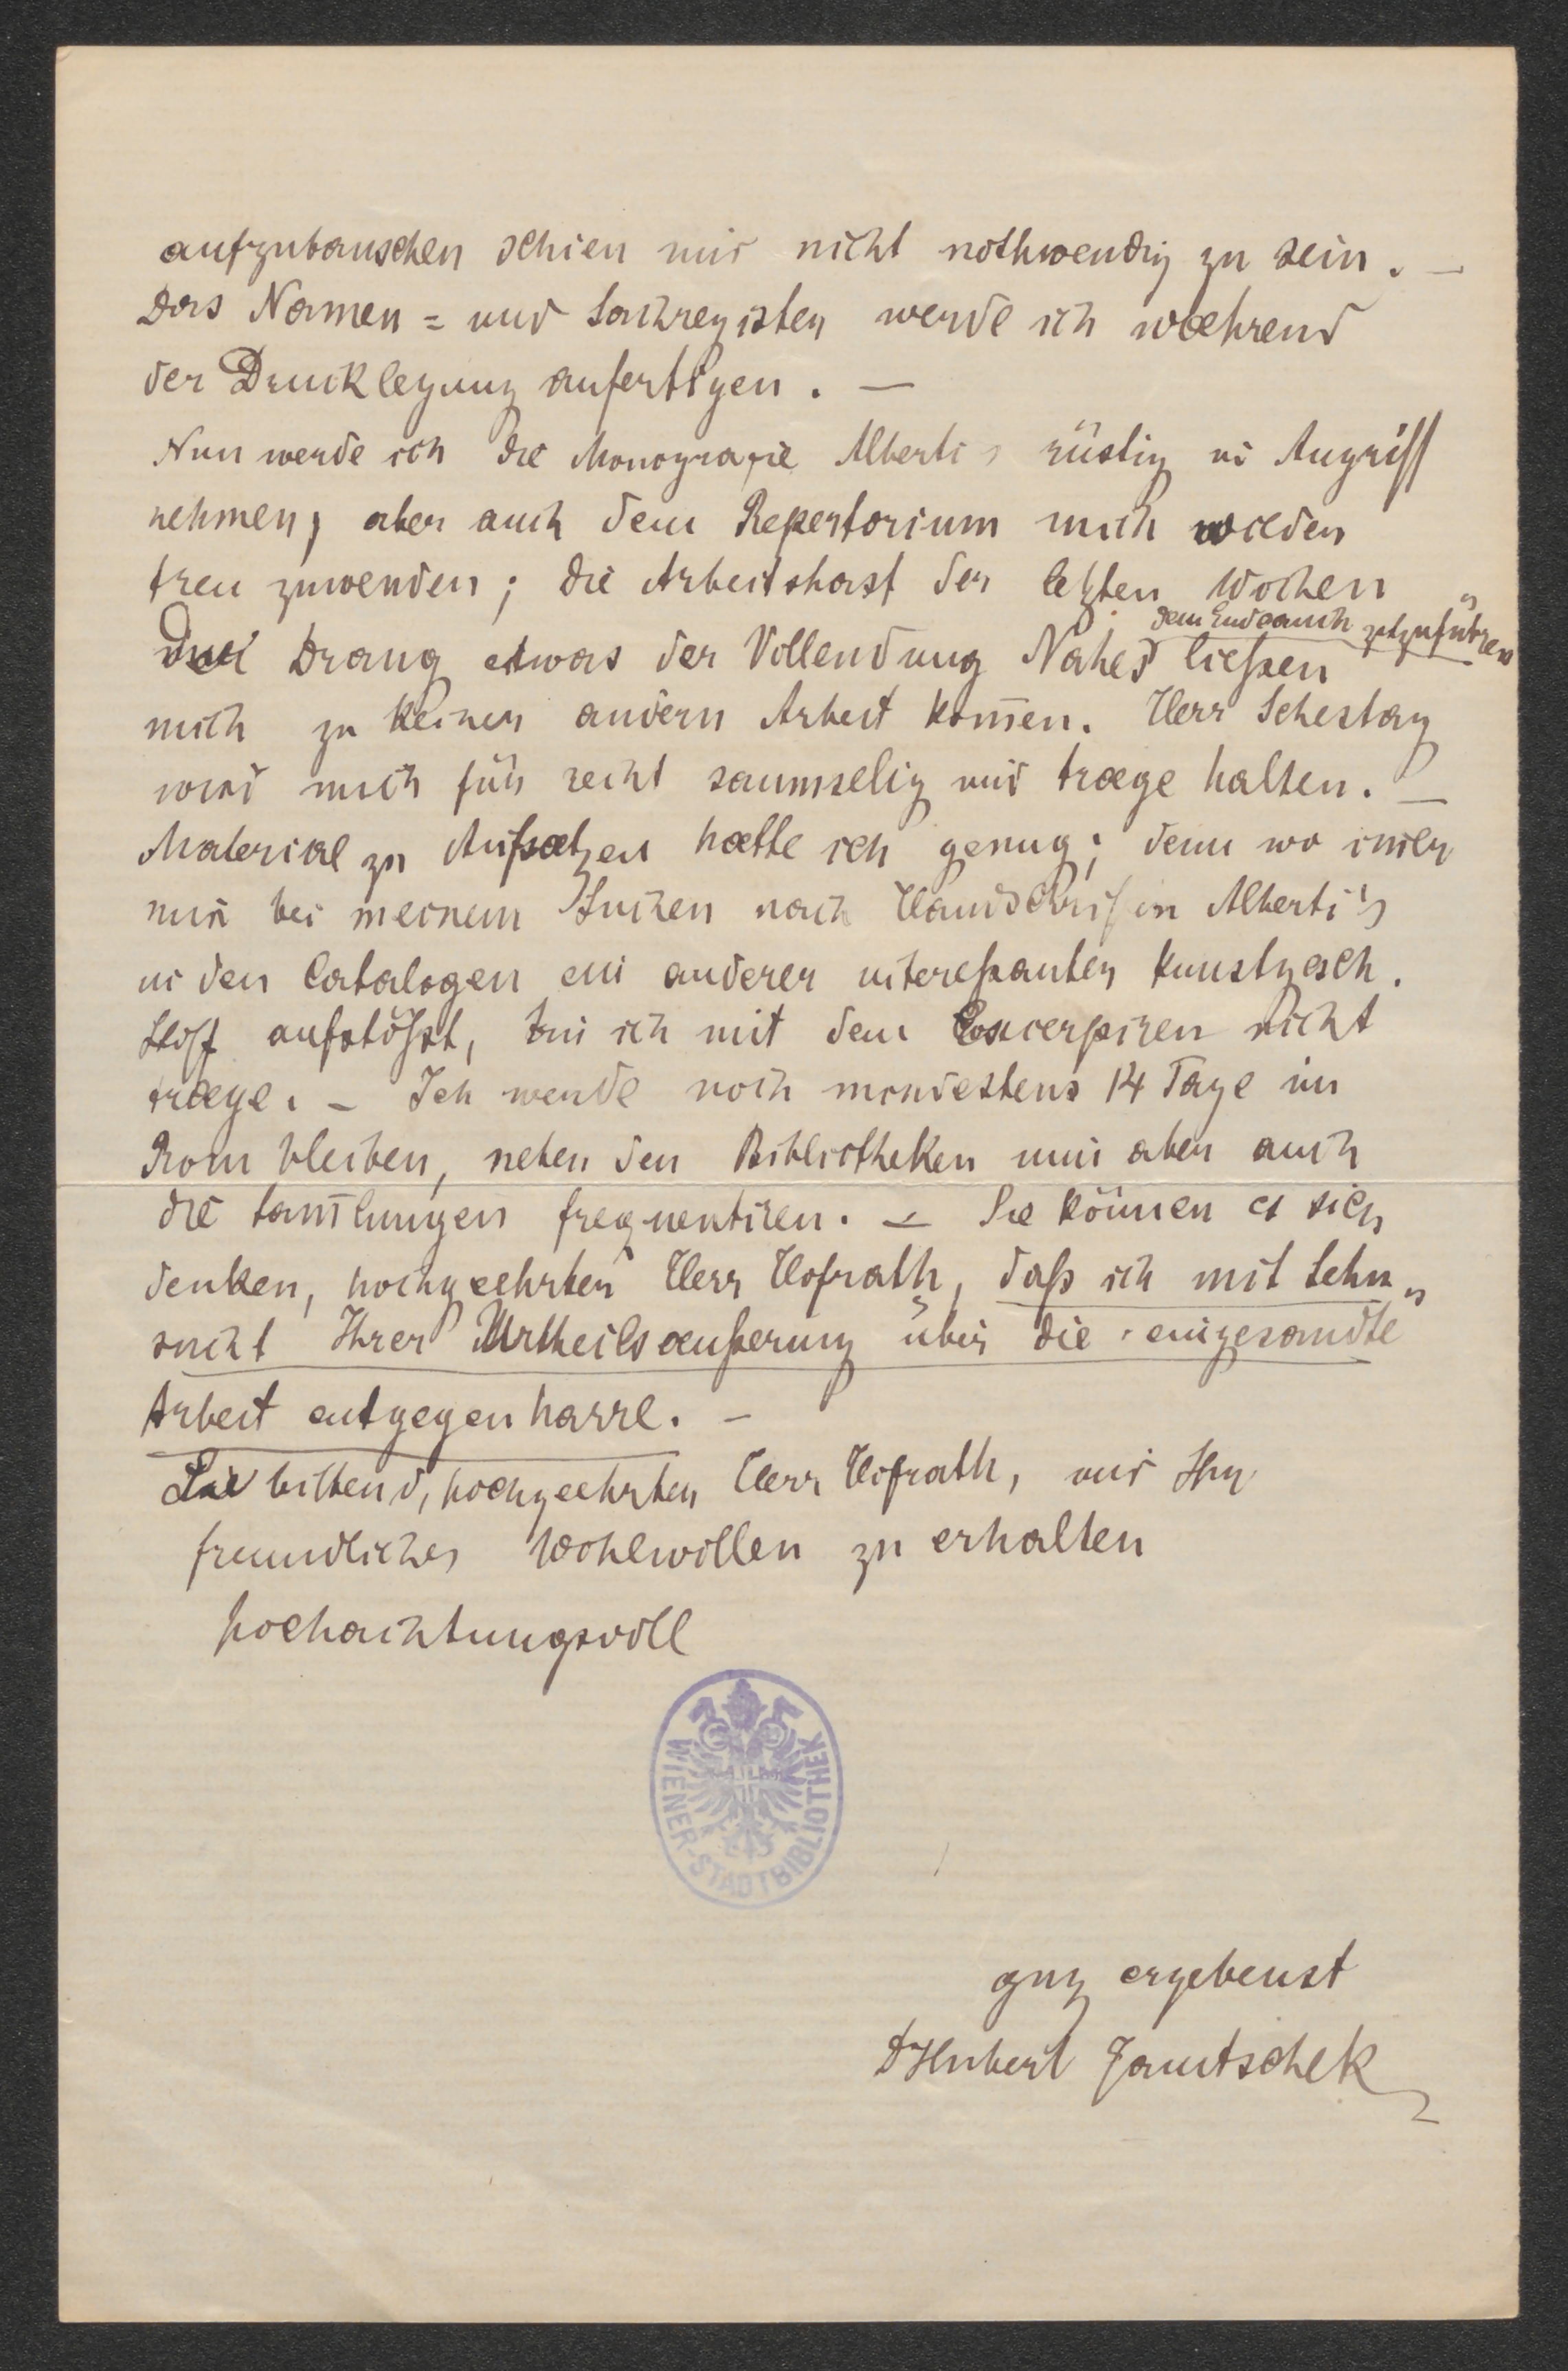 aufzubauschen schien mir nicht nothwendig zu sein. —
Das Namen = und Sachregister werde ich waehrend
der Drucklegung anfertigen. —
Nun werde ich die Monografie Alberti's rüstig in Angriff
nehmen, aber auch dem Repertorium mich wieder
treu zuwenden; die Arbeitshast der letzten Wochen
dem Ende auch zuzuführen
Drang etwas der Vollendung Nahes ließen
mich zu keiner andern Arbeit kom̄en. Herr Schestag
wird mich für recht saumselig und traege halten. —
Material zu Aufsaetzen haette ich genug; denn wo im̄er
mir bei meinem Suchen nach Handschriften Alberti's
in den Catalogen ein anderer interessanter kunstgesch.
Stoff aufstößt, bin ich mit dem Excerpiren nicht
traege. – Ich werde noch mindestens 14 Tage in
Rom bleiben, neben den Bibliotheken nun aber auch
die Sam̄lungen frequentiren. — Sie können es sich
denken, hochgeehrter Herr Hofrath, daß ich mit Sehn„
sucht Ihrer Urtheilsaeußerung über die eingesandte
Arbeit entgegenharre. –
Sie bittend, hochgeehrter Herr Hofrath, mir Ihr
freundliches Wohlwollen zu erhalten
hochachtungsvoll
WIENER-STADTBIBLIOTHEK
gnz ergebenst
DHubert Janitschek